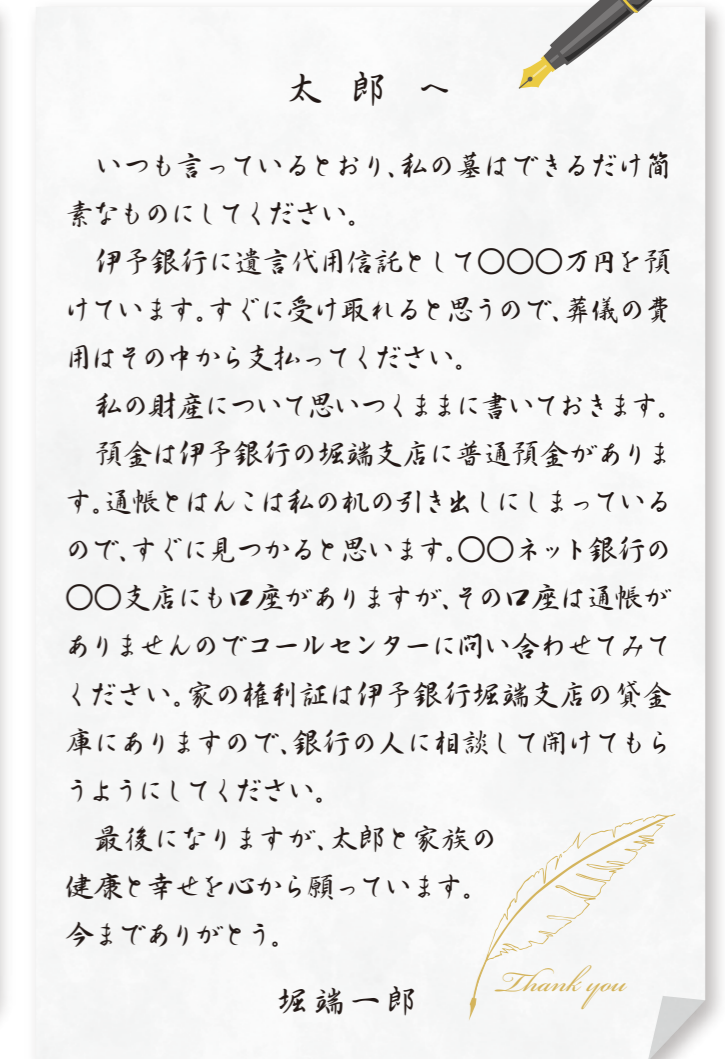 太郎へ
いつも言っているとおり、私の墓はできるだけ簡
素なものにしてください。
伊予銀行に遺言代用信託として〇〇〇万円を預
けています。すぐに受け取れると思うので、葬儀の費
用はその中から支払ってください。
私の財産について思いつくままに書いておきます。
預金は伊予銀行の堀端支店に普通預金がありま
す。通帳とはんこは私の机の引き出しにしまっている
ので、すぐに見つかると思います。〇〇ネット銀行の
〇〇支店にも口座がありますが、その口座は通帳が
ありませんのでコールセンターに問い合わせてみて
ください。家の権利証は伊予銀行堀端支店の貸金
庫にありますので、銀行の人に相談して開けてもら
うようにしてください。
最後になりますが、太郎と家族の
健康と幸せを心から願っています。
今までありがとう。
Thank you
堀端一郎